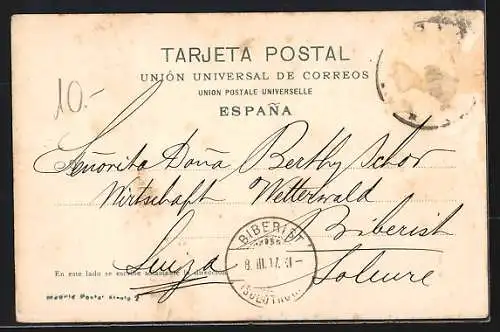 10.-
TARJETA POSTAL
UNIÓN UNIVERSAL DE CORREOS
UNION POSTALE UNIVERSELLE
ESPAÑA
Señorita Doña Berthy Schor
Wirtschaft Wetterwald
Biberist
Suiza Soleure
BIBERIST
8. III. 17
(SOLOTHURN)
En este lado se escribe solamente la dirección
Madrid Postal